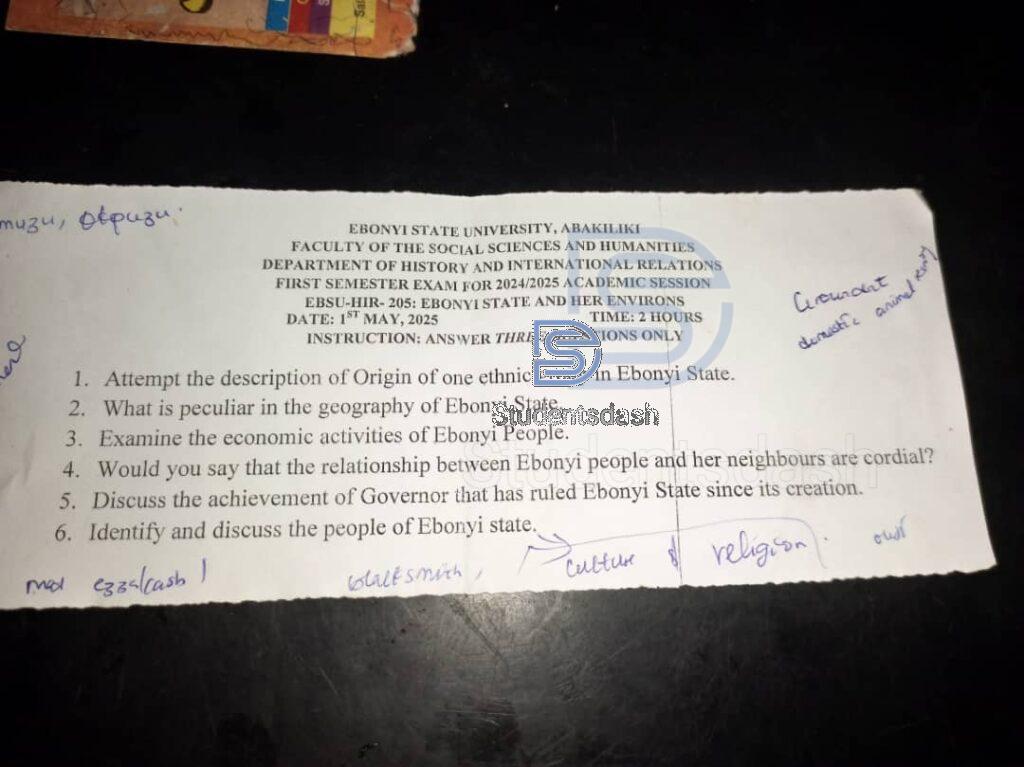 EBONYI STATE UNIVERSITY, ABAKILIKI
FACULTY OF THE SOCIAL SCIENCES AND HUMANITIES
DEPARTMENT OF HISTORY AND INTERNATIONAL RELATIONS
FIRST SEMESTER EXAM FOR 2024/2025 ACADEMIC SESSION
EBSU-HIR- 205: EBONYI STATE AND HER ENVIRONS
DATE: 1ST MAY, 2025 TIME: 2 HOURS
INSTRUCTION: ANSWER THREE QUESTIONS ONLY
domestic animal
1. Attempt the description of Origin of one ethnic in Ebonyi State.
2. What is peculiar in the geography of Ebonyi State.
Studentsdash
3. Examine the economic activities of Ebonyi People.
Studentsdash
4. Would you say that the relationship between Ebonyi people and her neighbours are cordial?
5. Discuss the achievement of Governor that has ruled Ebonyi State since its creation.
6. Identify and discuss the people of Ebonyi state.
culture & religion.